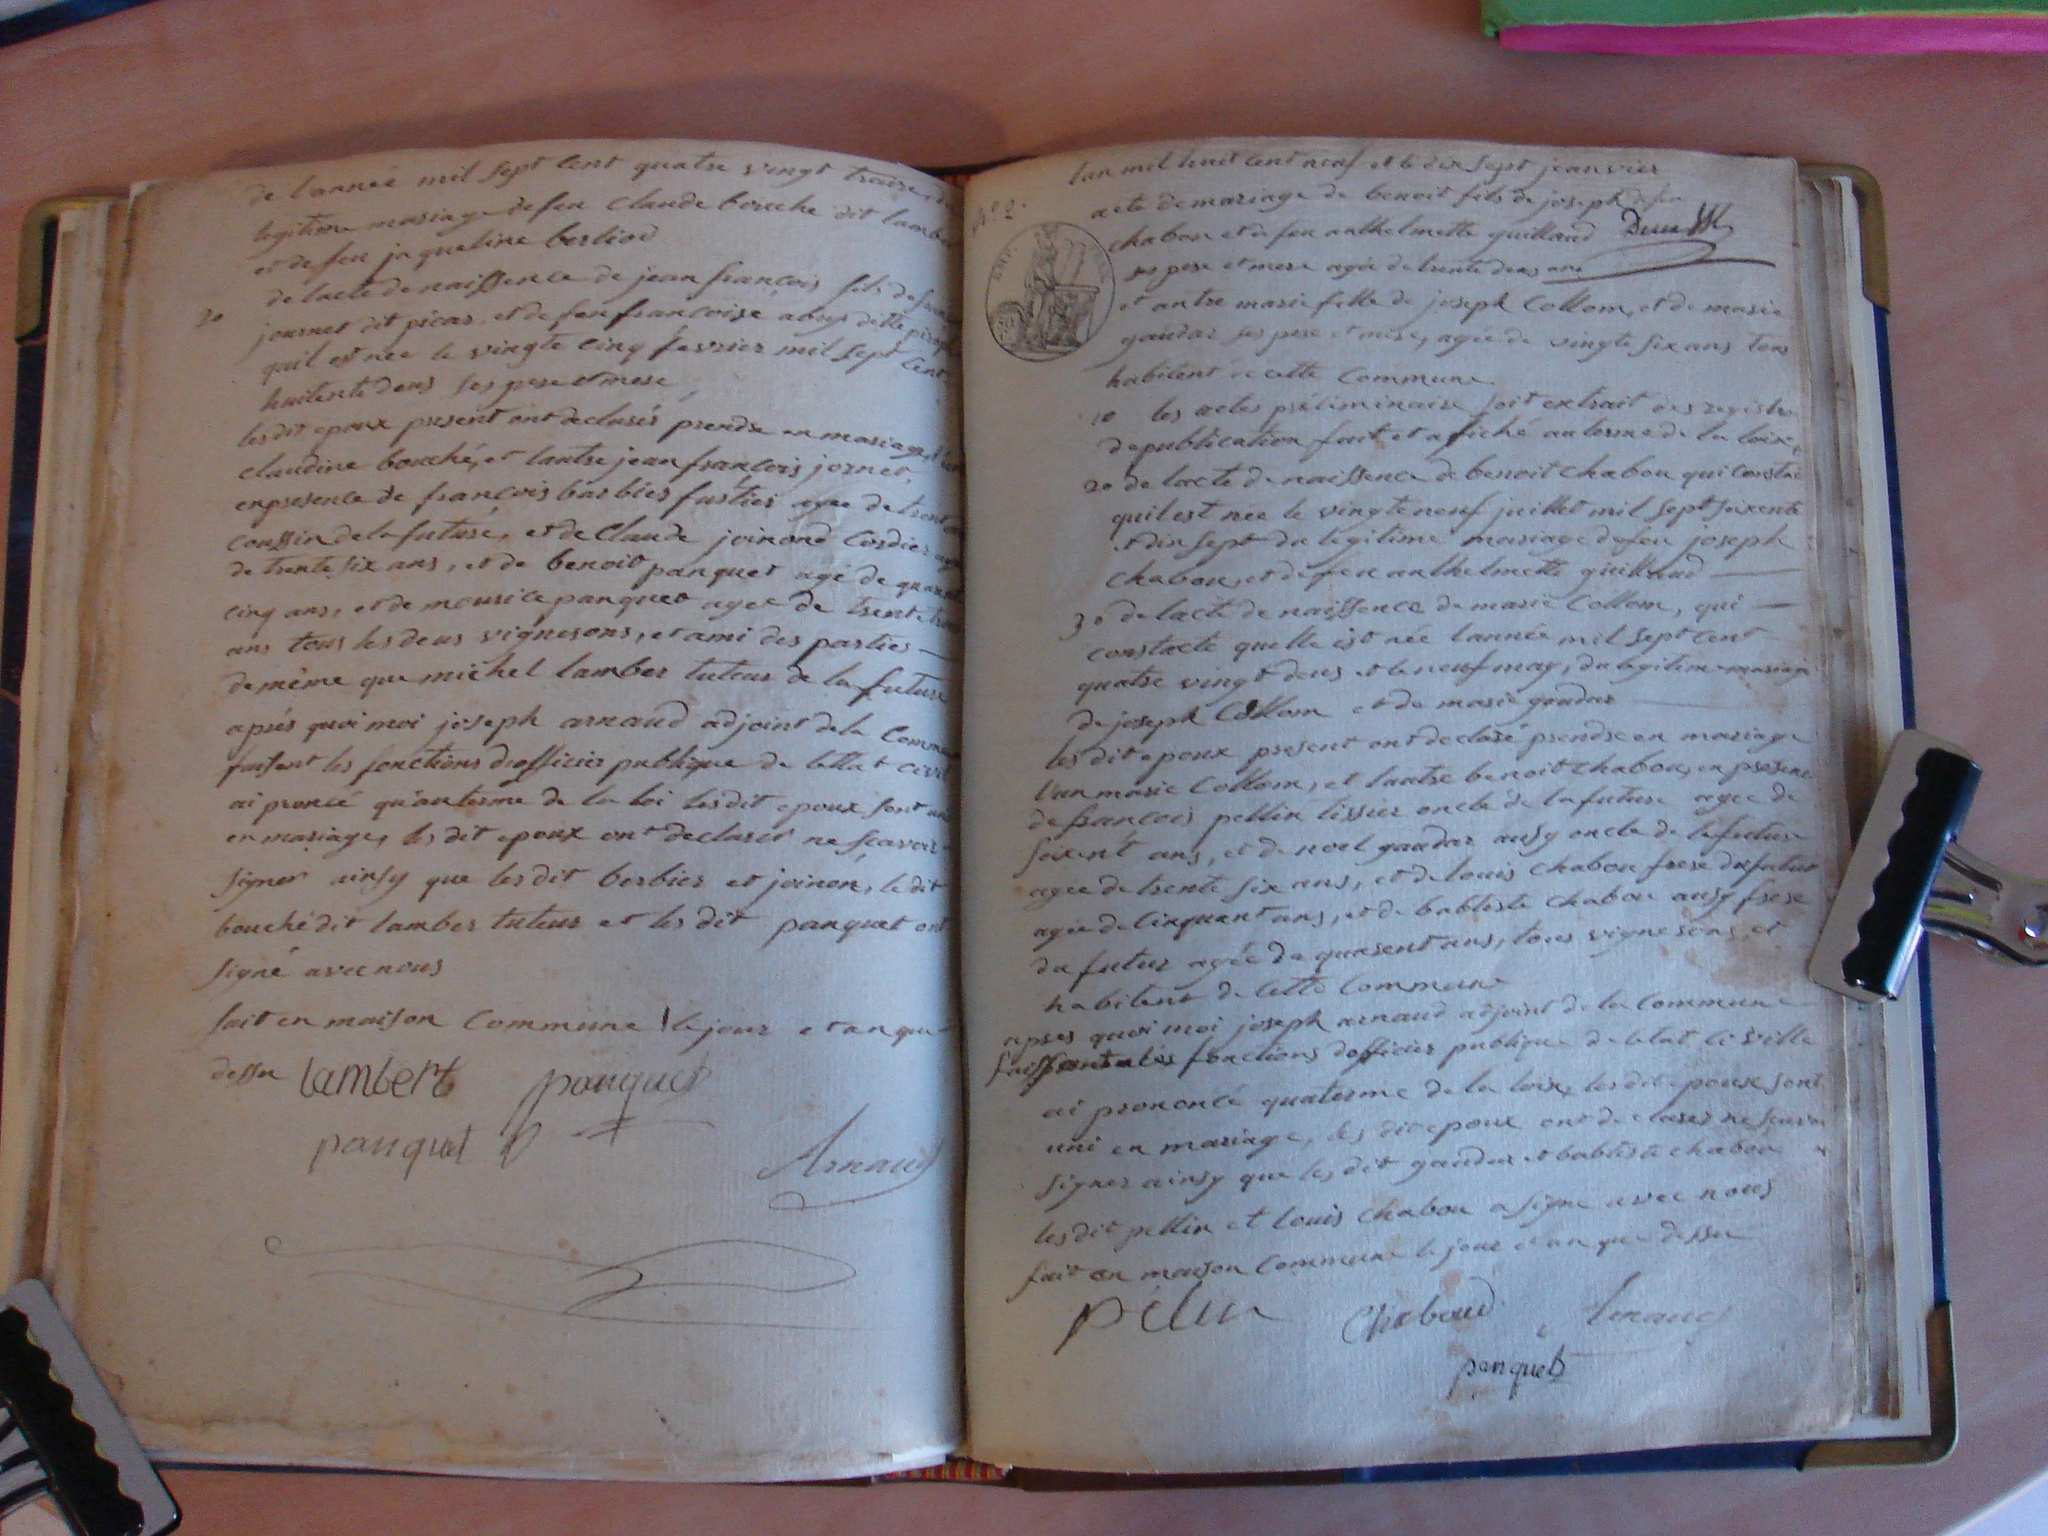 de l'année mil sept cent quatre vingt traize, du
legitime mariage de feu Claude bouche dit lamber
et de feu jaqueline berliod
20 de lacte de naissence de jean françois fils de
journet dit picar, et de feu francoise
quil est nee le vingte cinq fevrier mil sept cent
huitente deus ses pere et mere
les dit epoux present ont declarés prendre en mariage, l'un
claudine bouché, et lautre jean françois jornet,
en presence de françois barbier fustier agée de trent
coussin de la future, et de Claude joinond Cordier agée
de trente six ans, et de benoit panquet agé de quarent
cinq ans, et de mourice panquet agee de trente trois
ans tous les deus vignerons, et ami des parties
de même que michel lamber tuteur de la future
aprés quoi moi joseph arnaud adjoint de la Commune
faisent les fonctions d'officier publique de l'ettat civil
ai proncé qu'au terme de la loi les dit epoux sont uni
en mariage, les dit epoux ont declarer ne scavoir
signer ainsy que les dit berbier et joinon, le dit
bouché dit lamber tuteur et les dit panquet ont
signé avec nous
fait en maison Commune le jour et an que
dessu lambert panquet
panquet
Arnaud
N° 2.
l'an mil huit cent neuf et le dix sept jeanvier
acte de mariage de benoit fils de joseph de feu
chabou et de feu anthelmette guilland
ses pere et mere agée de trente deus ans
EMP. FRAN.
et autre marie fille de joseph Collom, et de marie
gaudar ses pere et mere, agée de vingte six ans tous
habitent de cette Commune
10 les actes préliminaire soit extrait des registre
de publication fait et afiché au terme de la loix,
20 de lacte de naissence de benoit chabou qui constate
quil est nee le vingte neuf juillet mil sept soixente
et dix sept du legitime mariage de feu joseph
chabou, et de feu anthelmette guilland
30 de lacte de naissence de marie Collom, qui
constacte quelle est née lannée mil sept cent
quatre vingt deus et le neuf may, du legitime mariage
de joseph Collom et de marie gaudar
les dit epoux present ont declaré prendre en mariage
l'un marie Collom, et lautre benoit chabou, en presence
de francois pellin tissier oncle de la future agee de
soixent ans, et de noel gaudar ausy oncle de la future
agée de trente six ans, et de louis chabou frere du futur
agée de Cinquant ans, et de babtiste chabou ausy frere
du futur agée de quarent ans, tous vignerons, et
habitent de cette Commune
apres quoi moi joseph arnaud adjoint de la Commune
faissant les fonctions dofficier publique de letat civille
ai prononcé quaterme de la loix, les dit epoux sont
uni en mariage, les dit epoux ont declarer ne scavoir
signer ainsy que les dit gaudar et babtiste chabou
les dit pellin et louis chabou a signe avec nous
fait en maison Commune le jour et an que dessu
pelin Chaboud Arnaud
panquet